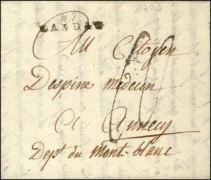 67
LANDAU
Au Citoyen
Despine médecin
A Annecy
Dept du Mont blanc